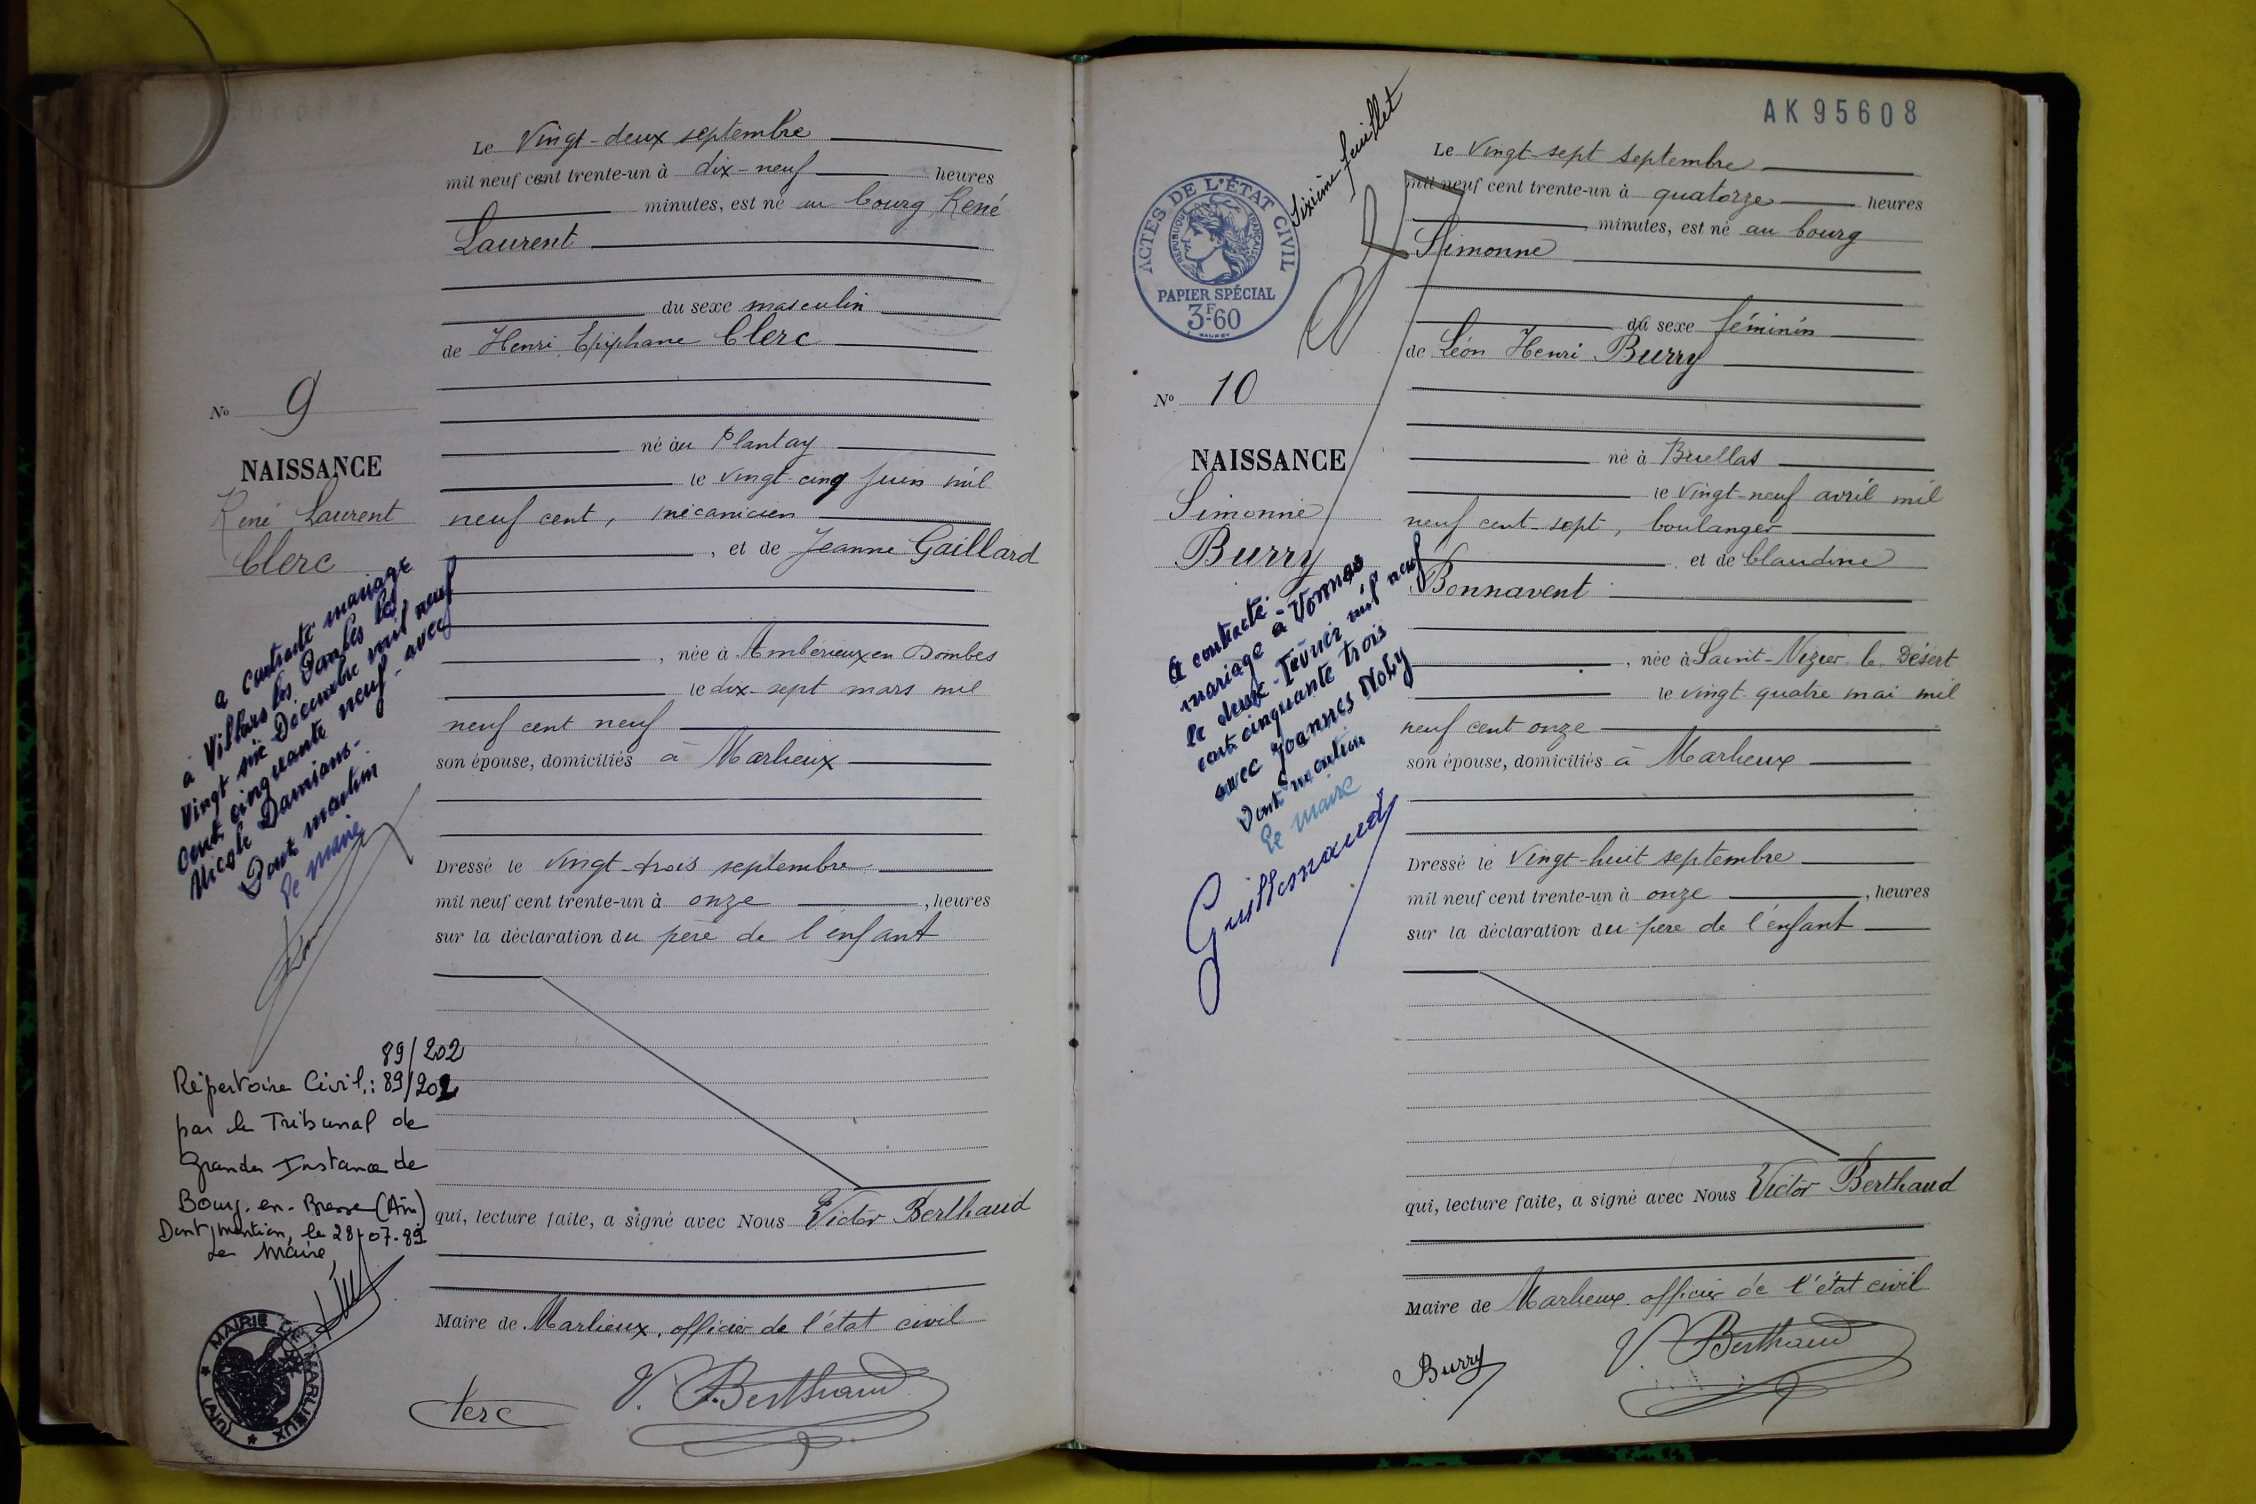 Le Vingt-deux septembre
mil neuf cent trente-un à dix-neuf heures
minutes, est né au bourg René
Laurent
du sexe masculin
de Henri Epiphane Clerc
né au Plantay
le vingt-cinq juin mil
neuf cent, mécanicien
, et de Jeanne Gaillard
, née à Ambérieux en Dombes
le dix-sept mars mil
neuf cent neuf
son épouse, domiciliés à Marlieux
Dressé le vingt-trois septembre
mil neuf cent trente-un à onze , heures
sur la déclaration du père de l'enfant
qui, lecture faite, a signé avec Nous Victor Berthaud
Maire de Marlieux, officier de l'état civil
Clerc
V. Berthaud
No 9
NAISSANCE
René Laurent
Clerc
a contracté mariage
à Villars les Dombes le
vingt six Décembre mil neuf
cent cinquante neuf - avec
Nicole Damians-
Dont mention
le maire
89/202
Répertoire Civil : 89/202
par le Tribunal de
Grande Instance de
Bourg-en-Bresse (Ain)
Dont mention, le 28-07-89
Le Maire
MAIRIE DE MARLIEUX
(Ain)
AK 95608
Sixième feuillet
ACTES DE L'ÉTAT CIVIL
RÉPUBLIQUE FRANÇAISE
PAPIER SPÉCIAL
3F-60
Le vingt-sept septembre
mil neuf cent trente-un à quatorze heures
minutes, est né au bourg
Simonne
du sexe féminin
de Léon Henri Burry
né à Buellas
le vingt-neuf avril mil
neuf cent-sept, boulanger
et de Claudine
Bonnavent
, née à Saint-Nizier le Désert
le vingt-quatre mai mil
neuf cent onze
son épouse, domiciliés à Marlieux
Dressé le vingt-huit septembre
mil neuf cent trente-un à onze , heures
sur la déclaration du père de l'enfant
qui, lecture faite, a signé avec Nous Victor Berthaud
Maire de Marlieux officier de l'état civil
Burry
V. Berthaud
No 10
NAISSANCE
Simonne
Burry
a contracté
mariage à Vonnas
le deux-Février mil neuf
cent cinquante trois
avec Joannes
Dont mention
Le maire
Guillemaud